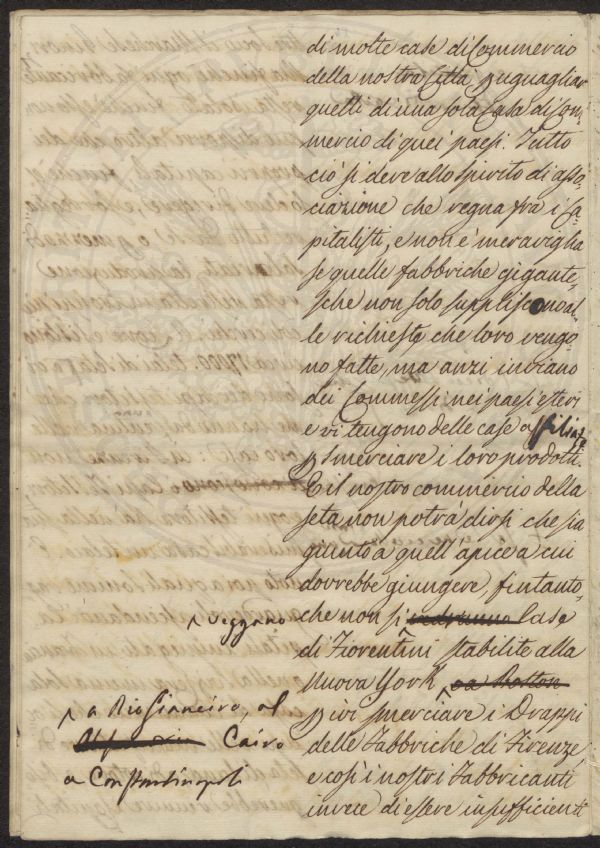 di molte case di Commercio
della nostra Città puguagliar
quelli di una sola Casa di Com-
mercio di quei paesi. Tutto
ciò si deve allo spirito di asso-
ciazione che regna frà i Ca-
pitalisti, e non è meraviglia
se quelle fabbriche gigante-
sche non solo suppliscono al-
le richieste che loro vengo-
no fatte, ma anzi inviano
dei Commessi nei paesi esteri
e vi tengono delle case affiliate
p smerciare i loro prodotti.
E il nostro commercio della
seta non potrà dirsi che sia
giunto a quell'apice a cui
dovrebbe giungere, fintanto-
che non si vedranno Case
veggano
di Fiorentini stabilite alla
Nuova York o a Boston
a Rio Gianeiro, al
Cairo
a Constantinopoli
p ivi smerciare i Drappi
delle Fabbriche di Firenze
e così i nostri Fabbricanti
invece di essere insufficienti